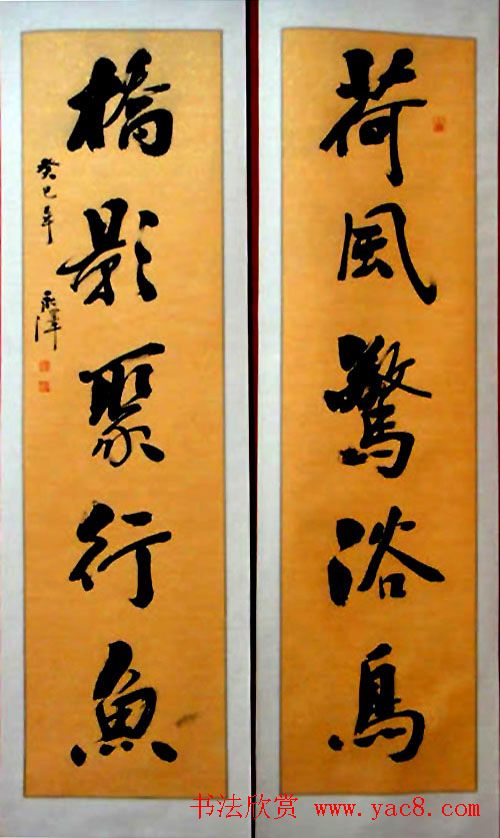 荷風驚浴鳥
橋影聚行魚
癸巳年
书法欣赏 www.yac8.com